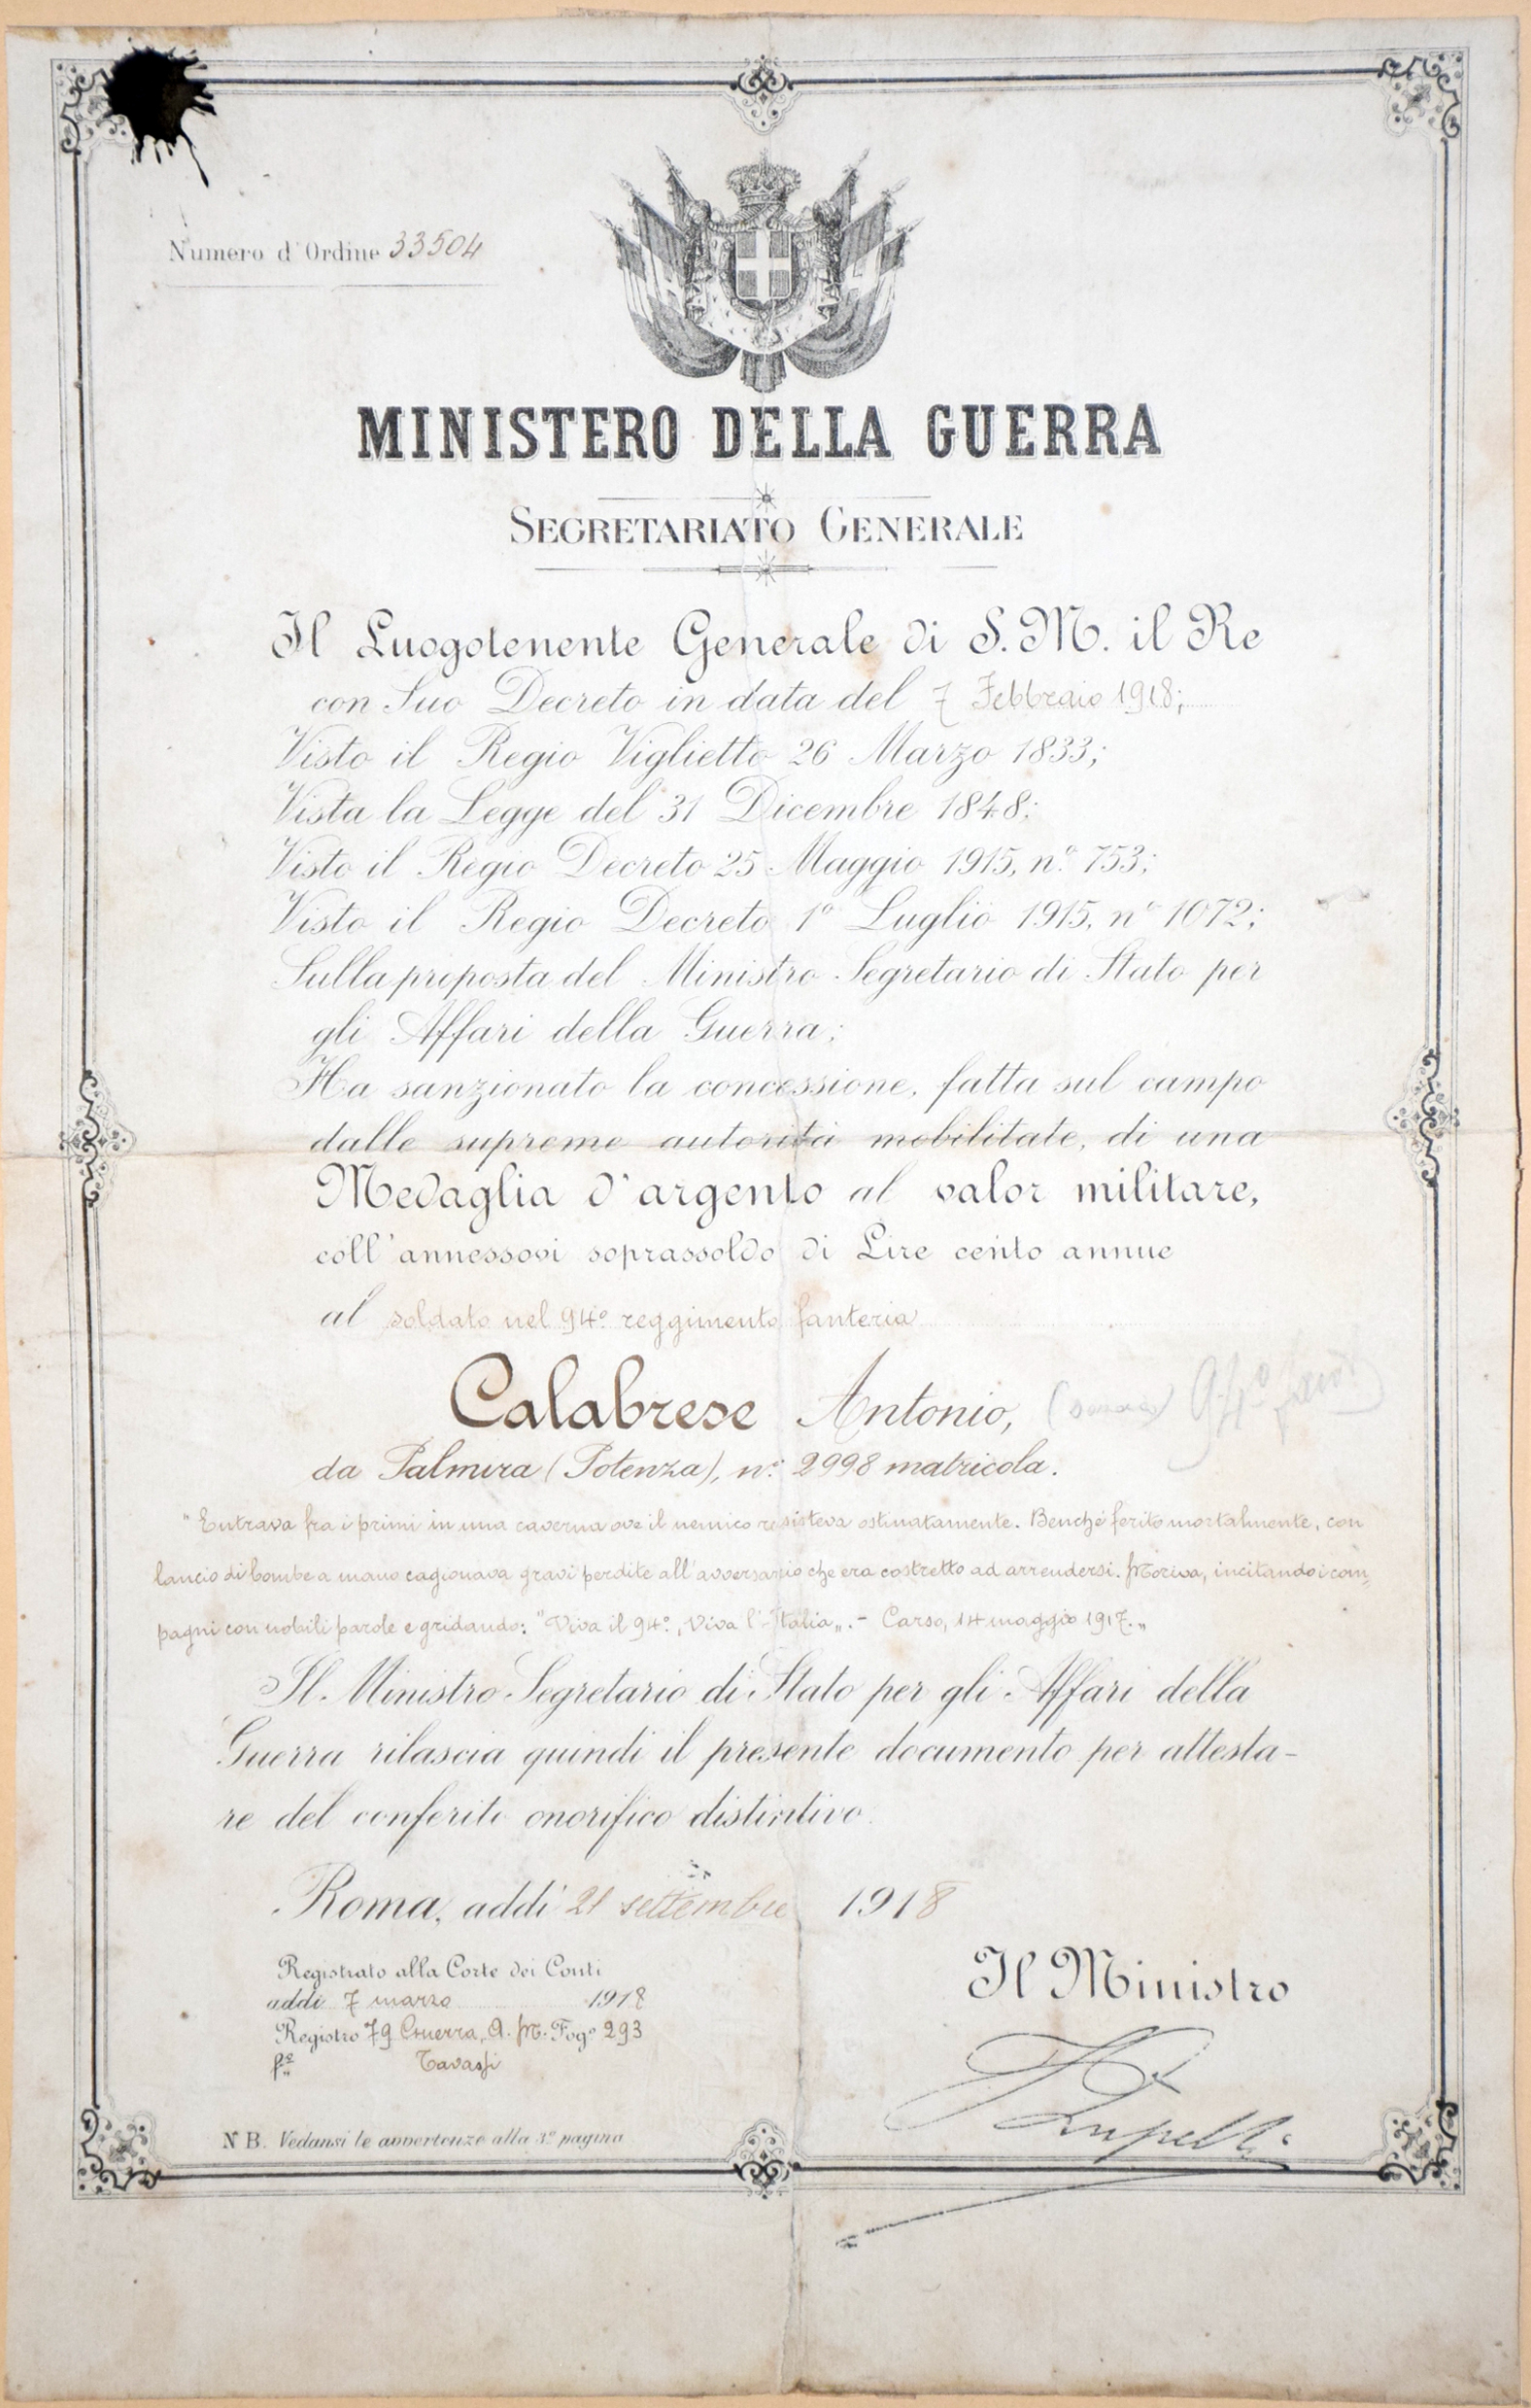 Numero d'Ordine 33504
MINISTERO DELLA GUERRA
SEGRETARIATO GENERALE
Il Luogotenente Generale di S. M. il Re
con Suo Decreto in data del 7 Febbraio 1918;
Visto il Regio Viglietto 26 Marzo 1833;
Vista la Legge del 31 Dicembre 1848;
Visto il Regio Decreto 25 Maggio 1915, n.º 753;
Visto il Regio Decreto 1º Luglio 1915, nº 1072;
Sulla proposta del Ministro Segretario di Stato per
gli Affari della Guerra;
Ha sanzionato la concessione, fatta sul campo
dalle supreme autorità mobilitate, di una
Medaglia d'argento al valor militare,
coll'annessovi soprassoldo di Lire cento annue
al soldato nel 94º reggimento fanteria
Calabrese Antonio, 94º
da Palmira (Potenza), n.º 2998 matricola.
"Entrava fra i primi in una caverna ove il nemico resisteva ostinatamente. Benchè ferito mortalmente, con
lancio di bombe a mano cagionava gravi perdite all'avversario che era costretto ad arrendersi. Moriva, incitando i com-
pagni con nobili parole e gridando: "Viva il 94º, Viva l'Italia„. - Carso, 14 maggio 1917.„
Il Ministro Segretario di Stato per gli Affari della
Guerra rilascia quindi il presente documento per attesta-
re del conferito onorifico distintivo.
Roma, addì 21 settembre 1918
Registrato alla Corte dei Conti
addì 7 marzo 1918
Registro 79 Guerra, A. M. Fogº 293
Tavassi
Il Ministro
Zupelli
NB. Vedansi le avvertenze alla 3ª pagina